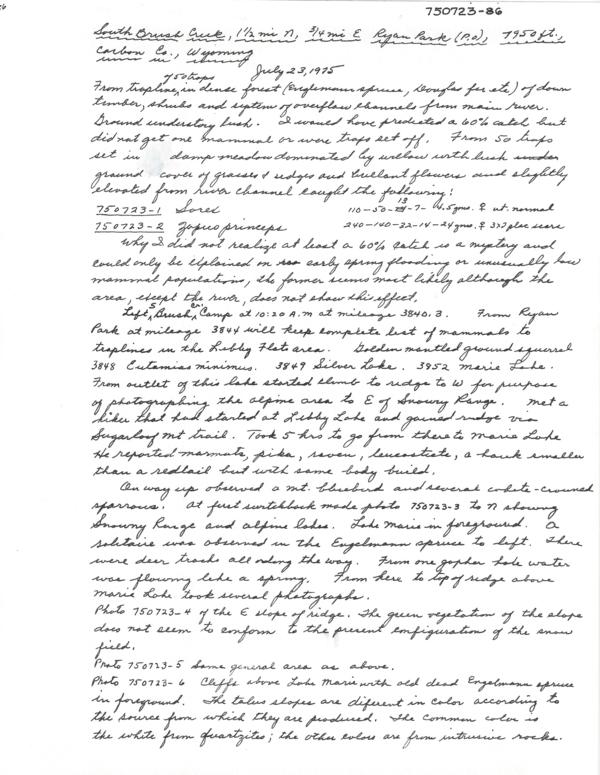 750723-86
South Brush Creek, 1½ mi N, ¾ mi E Ryan Park (P.O.), 7950 ft.,
Carbon Co., Wyoming
July 23, 1975
From trapline, of 50 traps in dense forest (Englemann spruce, Douglas fer etc) of down
timber, shrubs and system of overflow channels from main river.
Ground understory lush. I would have predicted a 60% catch but
did not get one mammal or were traps set off. From 50 traps
set in damp meadow dominated by willow with lush under
ground cover of grasses & sedges and buellant flowers and slightly
elevated from river channel caught the following:
750723-1 Sorex 110-50-13-7- 4.5 gms. ♀ ut. normal
750723-2 Zapus princeps 240-140-32-14-24 gms. ♀ 3x2 plac scars
Why I did not realize at least a 60% catch is a mystery and
could only be explained on early spring flooding or unusually low
mammal populations, the former seems most likely although the
area, except the river, does not show this effect.
Left S. Brush Cr. Camp at 10:20 A.M at mileage 3840.3. From Ryan
Park at mileage 3844 will keep complete list of mammals to
traplines in the Libby Flats area. Golden mantled ground squirrel
3848 Eutamias minimus. 3849 Silver Lake. 3852 Marie Lake.
From outlet of this lake started climb to ridge to W for purpose
of photographing the alpine area to E of Snowy Range. Met a
hiker that had started at Libby Lake and gained ridge via
Sugarloaf Mt trail. Took 5 hrs to go from there to Marie Lake
He reported marmots, pika, raven, leucosticte, a hawk smaller
than a redtail but with same body build.
On way up observed a mt. bluebird and several white-crowned
sparrows. At first switchback made photo 750723-3 to N showing
Snowy Range and alpine lakes. Lake Marie in foreground. A
solitaire was observed in the Engelmann spruce to left. There
were deer tracks all along the way. From one gopher hole water
was flowing like a spring. From here to top of ridge above
Marie Lake took several photographs.
Photo 750723-4 of the E slope of ridge. The green vegetation of the slope
does not seem to conform to the present configuration of the snow
field.
Photo 750723-5 Same general area as above.
Photo 750723-6 Cliffs above Lake Marie with old dead Engelmann spruce
in foreground. The talus slopes are diferent in color according to
the source from which they are produced. The common color is
the white from quartzites; the other colors are from intrusive rocks.